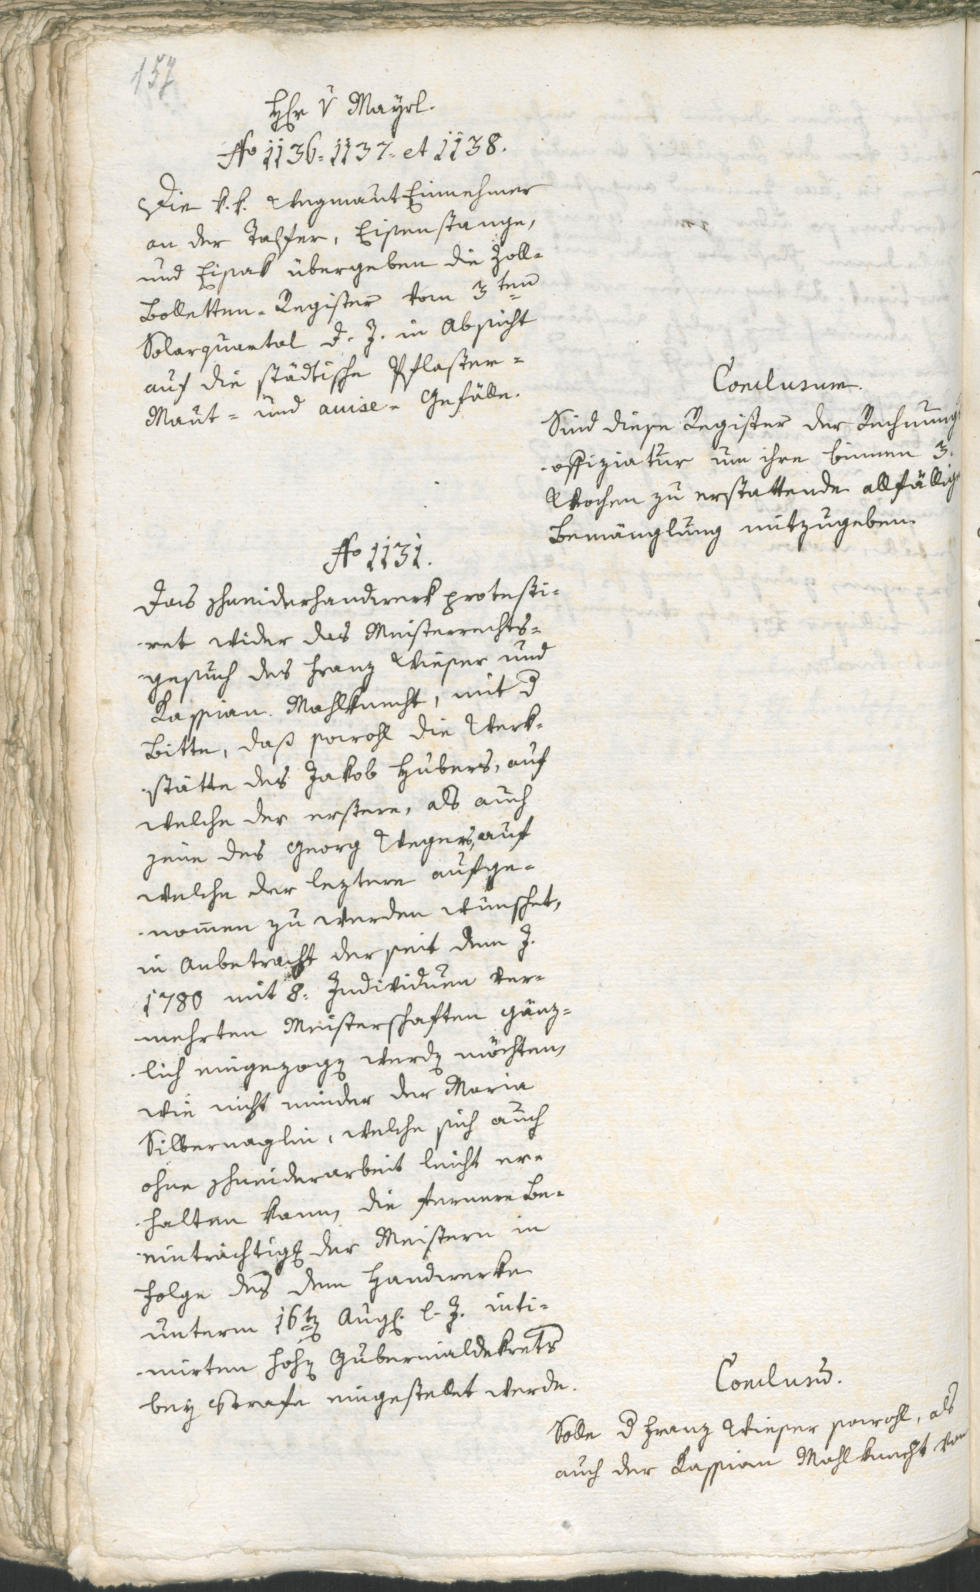 157
Hr v Mayrl.
No 1136. 1137. et 1138.
Die k. k. Wegmaut Einnehmer
an der Talfer, Eisenstange,
und Eisak übergeben die Zoll-
Bolletten-Register vom 3ten
Solarquartal d. J. in Absicht
auf die städtische Pflaster-
Maut- und accise-Gefälle.
Conclusum.
Sind diese Register der Rechnungs
offiziatur um ihre binnen 3.
Wochen zu erstattende allfällige
Bemänglung mitzugeben.
No 1131.
Das Schneiderhandwerk protesti-
ret wider das Meisterrechts-
gesuch des Franz Wieser und
Kassian Mahlknecht, mit d
Bitte, daß sowohl die Werk-
stätte des Jakob Hubers, auf
welche der erstere, als auch
jene des Georg Wegers, auf
welche der leztere aufge-
nom̄en zu werden wünschet,
in Anbetracht der seit dem J.
1780 mit 8. Individuen ver-
mehrten Meisterschaften gänz-
lich eingezogen werden möchten,
wie nicht minder der Maria
Silbernaglin, welche sich auch
ohne Schneiderarbeit leicht er-
halten kann, die fernere Be-
einträchtigg der Meistern in
Folge des dem Handwerke
unterm 16ten Aug. l. J. inti-
mirten hohen Gubernialdekrets
bey Strafe eingestellt werde.
Conclusum.
Solle d Franz Wieser sowohl, als
auch der Kassian Mahlknecht von